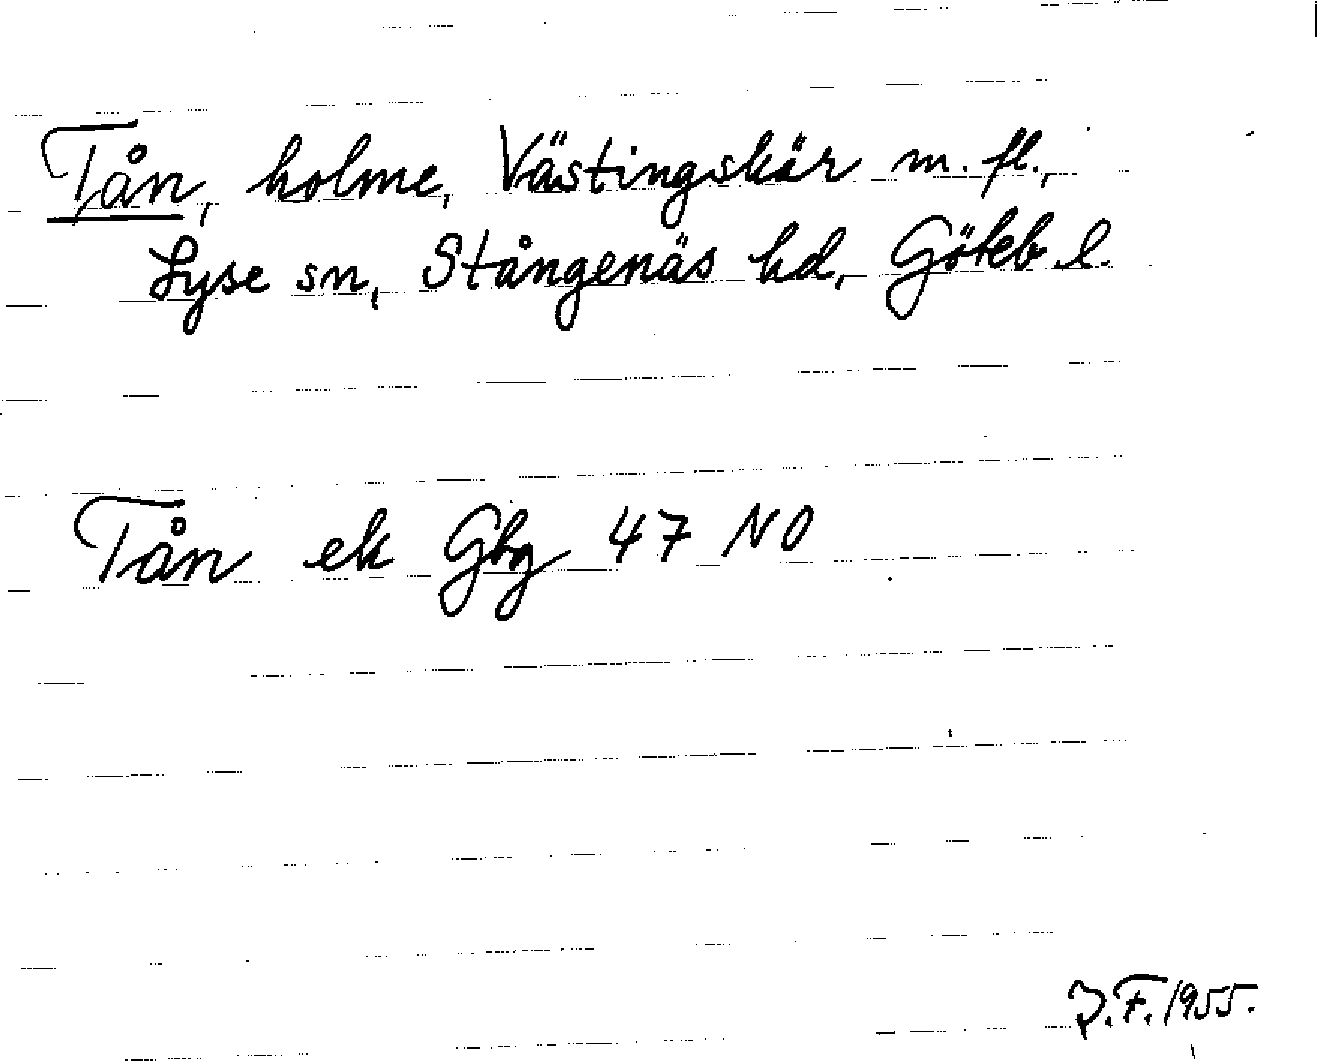 Tån, holme, Västingskär m. fl.,
Lyse sn, Stångenäs hd, Göteb. l.
Tån ek Gbg 47 NO
J.F. 1955.